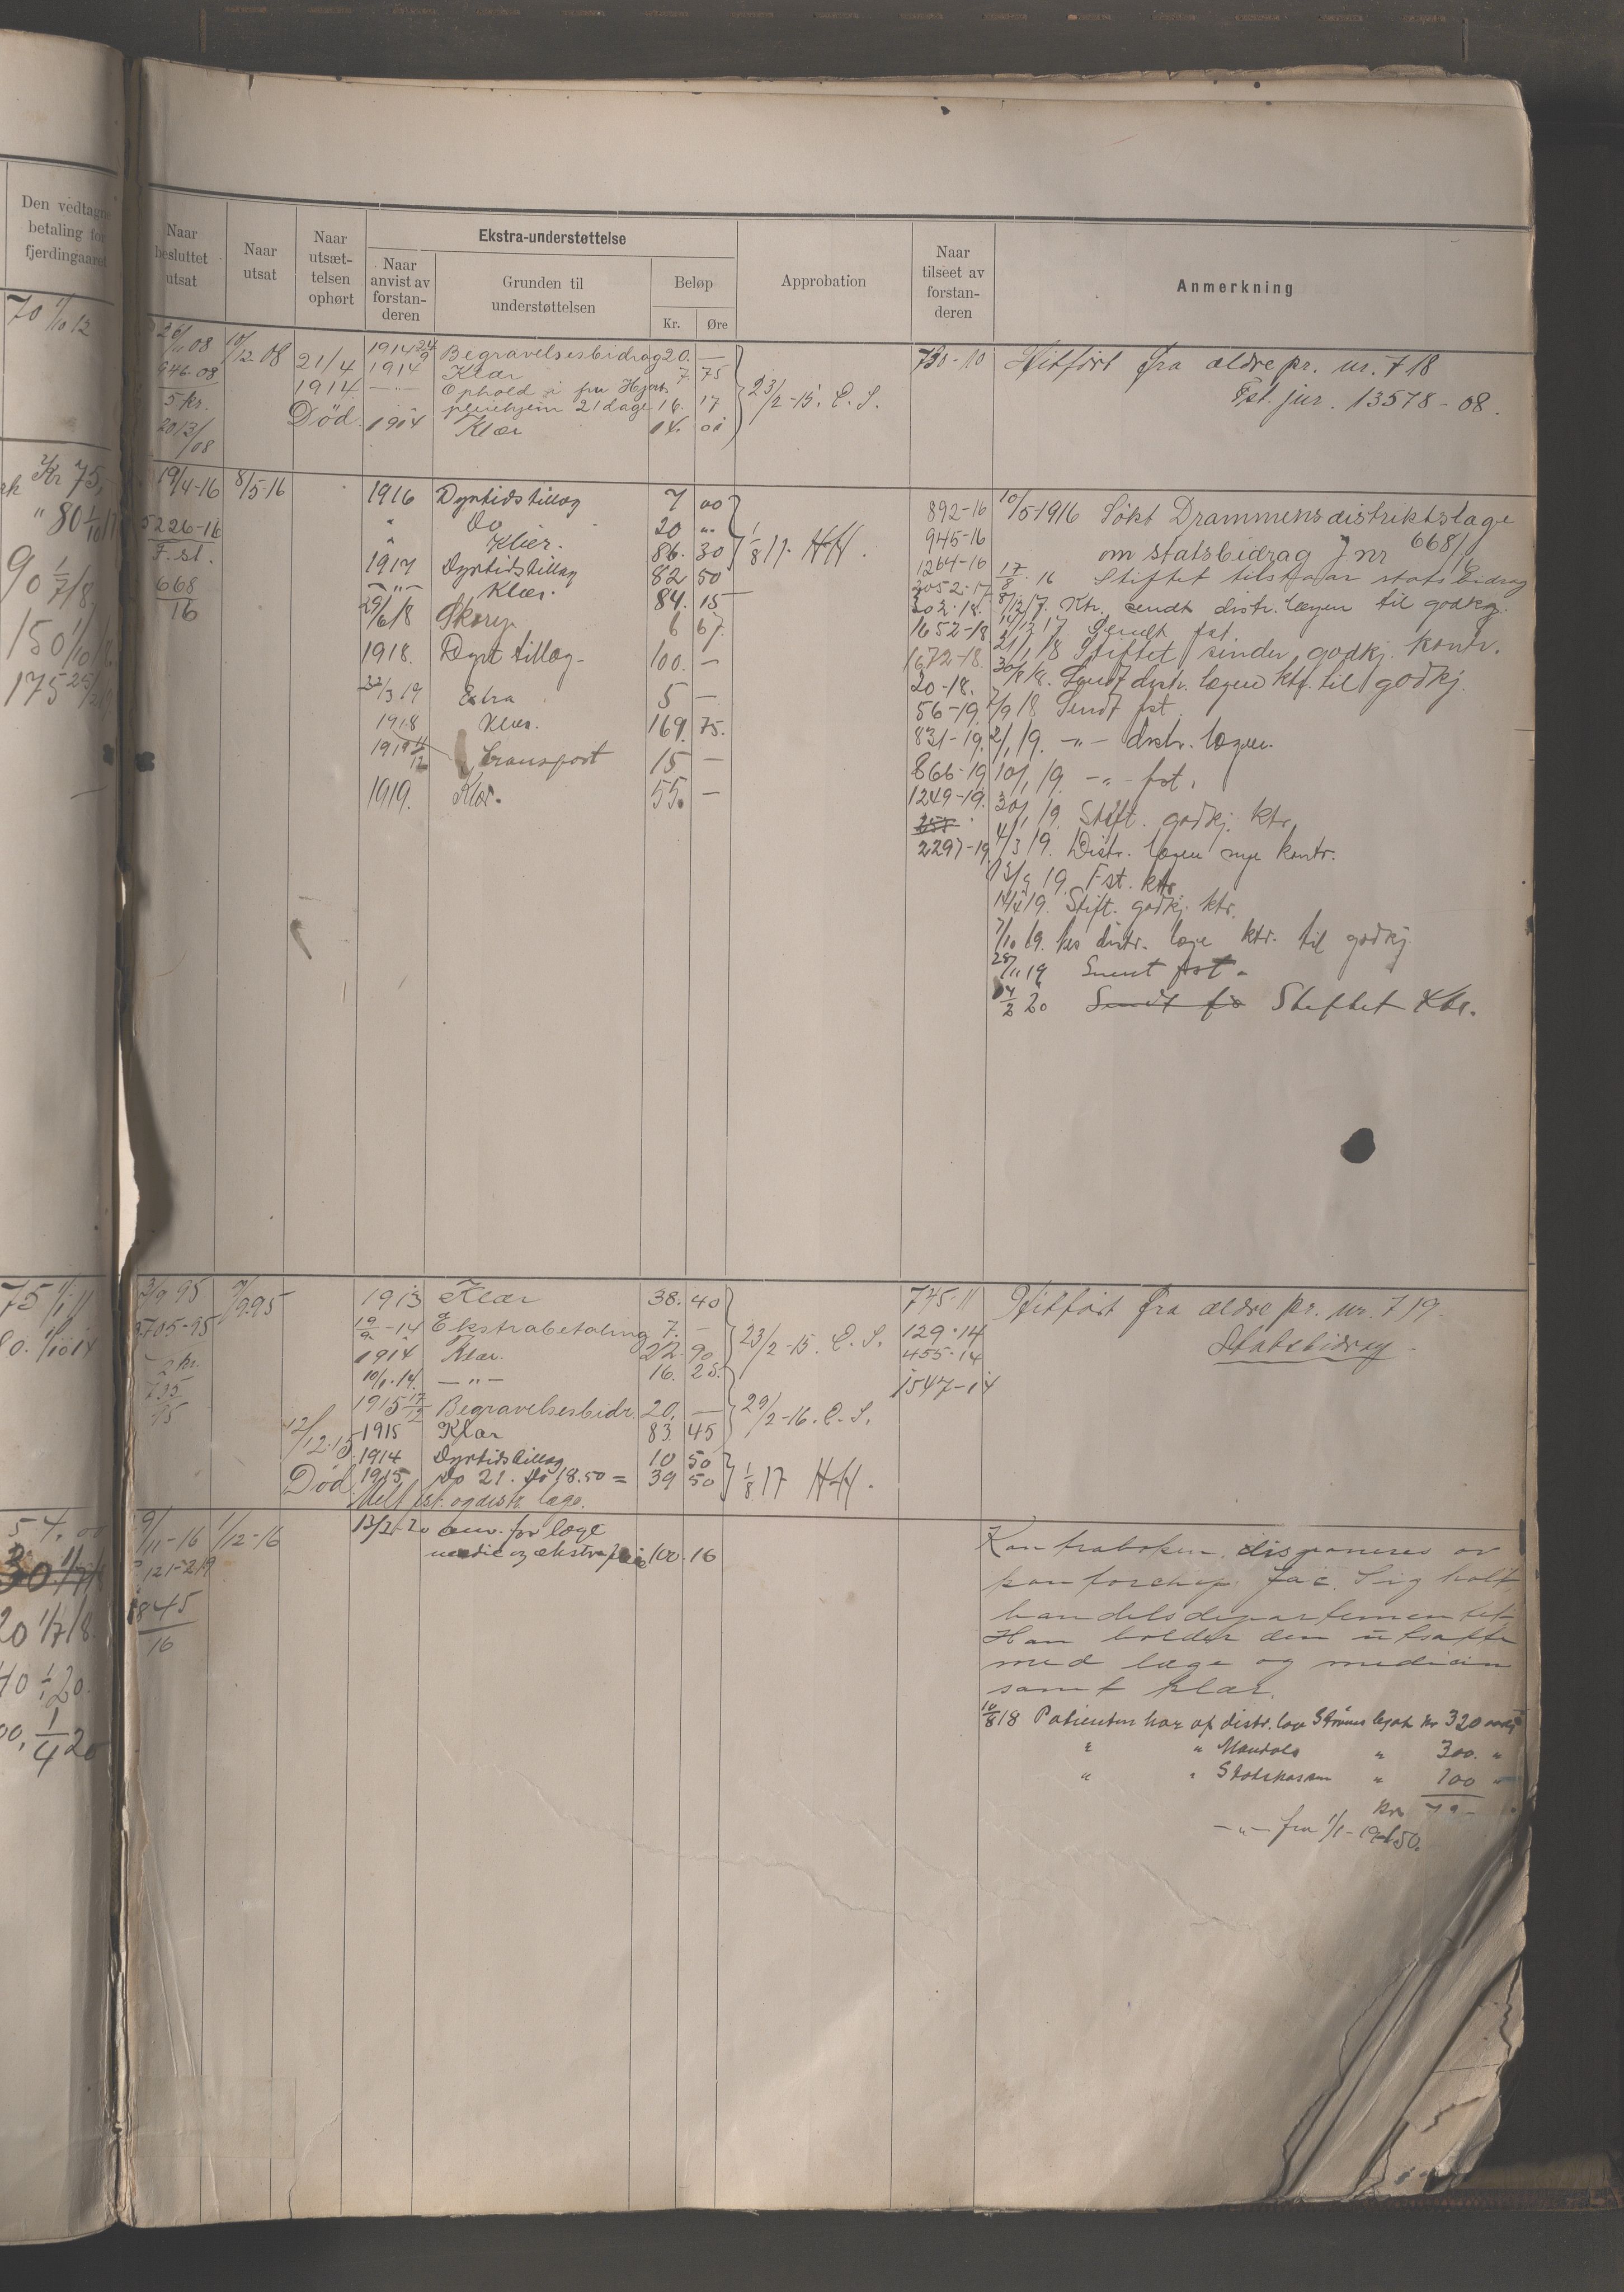 Den vedtagne
betaling for
fjerdingaaret
70 1/10 12
Kr 75,
" 80 1/10 17
90 1/7 18
150 1/10 18
175
75 1/1 11
80. 1/10 14
54,00
30 1/7 18
20 1/7 18.
40 1/1 20.
00, 1/4 20
Naar
besluttet
utsat
Naar
utsat
Naar
utsæt-
telsen
ophørt
Ekstra-understøttelse
Naar
anvist av
forstan-
deren
Grunden til
understøttelsen
Beløp
Kr.
Øre
Approbation
Naar
tilseet av
forstan-
deren
Anmerkning
26/11 08
946-08
5 kr.
2013/08
10/12 08
21/4
1914
Død.
1914 24/9 Begravelsesbidrag 20. —
1914 Klær 7. 75
— " — Ophold i fru Hjorts
pleiehjem 21 dage 16. 17
1914 Klær 14. 01
23/2-15. C. S.
730-10
Hitført fra ældre pr. nr. 718
Fst. jur. 13578-08.
19/4-16
5226-16
F. st.
668
16
8/5-16
1916 Dyrtidstillæg 7 00
" Do " 20 "
" Klær. 86. 30
1917 Dyrtidstillæg 82 50
— " — Klær. 84. 15
29/6 18 Skorep. 6 67.
1918. Dyrt tillæg- 100. —
22/3 19 Extra 5 —
1918 Klær. 169. 75.
1919 11/12 Transport 15 —
1919. Klær. 55. —
1/8 17. HH.
892-16
945-16
1264-16
3052-17
202-18.
1652-18
1672-18.
20-18.
56-19.
831-19.
866-19
1249-19.
2297-19
10/5-1916 Søkt Drammens distriktslæge
om statsbidrag J nr 668/16
17/8 16 Stiftet tilstaar statsbidrag
8/12 17. Ktr. sendt distr. lægen til godkj.
14/12 17 Sendt fst.
2/1 18 Stiftet sender godkj. kontr.
30/8 18. Sendt distr. lægen ktr. til godkj.
/9 18 Sendt fst.
2/1 19. — " — distr. lægen.
10/1 19 — " — fst.
30/1 19. Stift. godkj. ktr.
4/3 19. Distr. lægen nye kontr.
19. Fst. ktr
14/4 19. Stift. godkj. ktr.
7/10 19. hos distr. læge ktr. til godkj.
28/11 19 Sendt fst.
14/2 20 Sendt fs Stiftet Ktr.
3/9 95
3705-95
5 kr.
735
95
7/9 95
12/12.15
Død
1913 Klær 38. 40
19/2-14 Ekstrabetaling 7. —
1914 Klær. 22. 90
10/1-14. — " — 16. 25.
1915 17/12 Begravelsesbidr. 20. —
1915 Klær 83. 45
1914 Dyrtidstillæg 10 50
1915 Do 21. Do 18.50 = 39 50
Melt fst. og distr. læge.
23/2-15. C. S.
29/2-16. C. S.
1/8 17 HH.
745-11
129-14
455-14
1547-14
Hitført fra ældre pr. nr. 719.
Statsbidrag.
/11-16
121-219
845
16
1/12-16
13/2-20 anv. for læge
medic og ekstrapleie 100. 16
Kontraboken disponeres av
Jac. Sigholt
handelsdepartementet
Han holder den utsatte
med læge og medicin
samt klær.
10/8 18 Patienten har af distr. lov Strøms legat kr 320
" " Mandals " 300. "
" " Statskassen " 100 "
Kr.
— " — fra 1/1-19